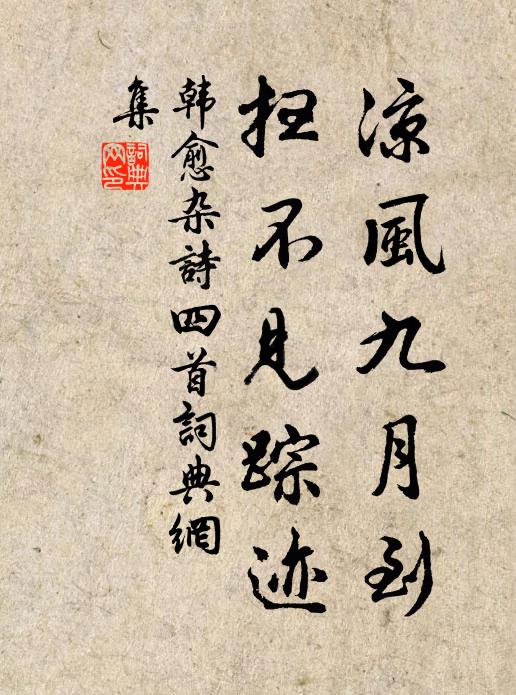 涼風九月到
扫不見踪迹
韓愈杂詩四首詞典網
集
詞典
网印